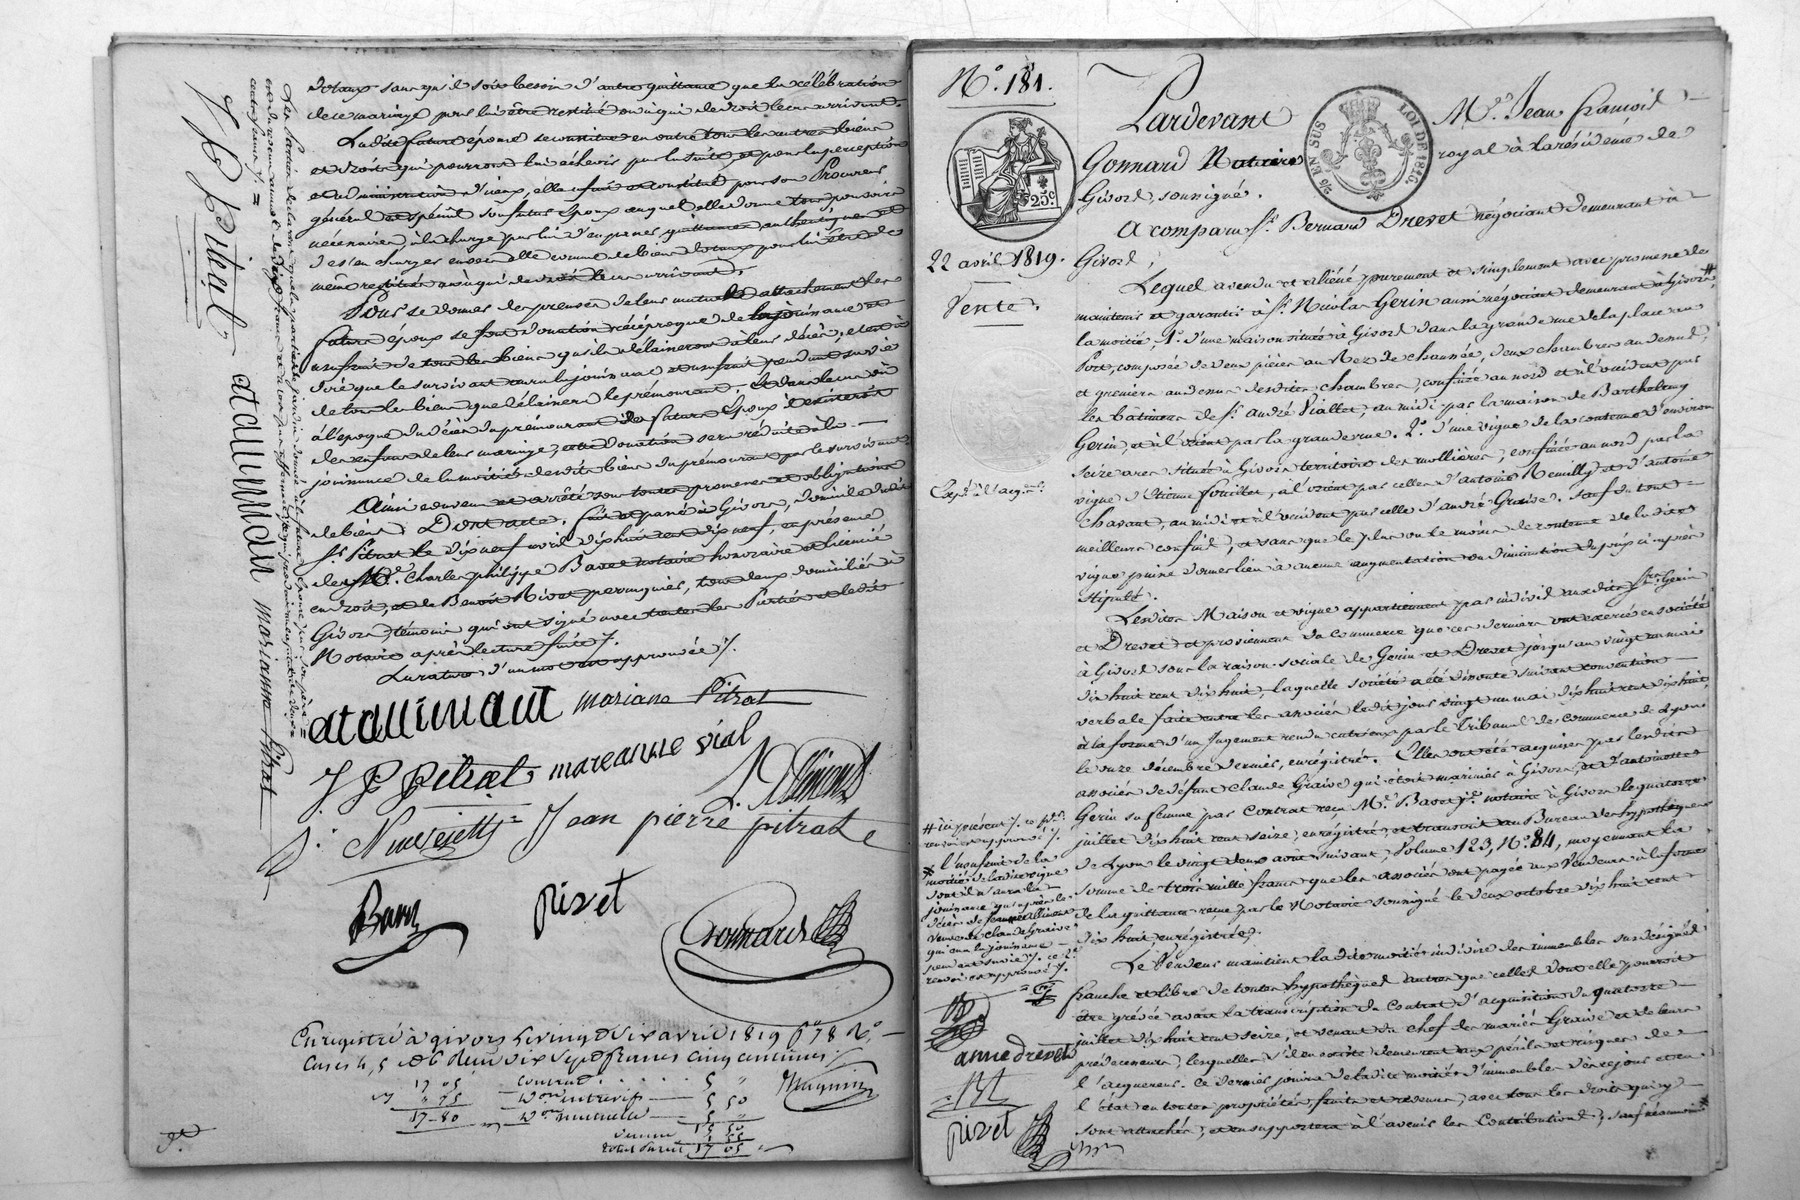 dotaux sans qu'il soit besoin d'autre quittance que la célébration
de ce mariage pour lui être restitué ou à qui de droit le cas arrivant.
La dite future épouse se constitue en outre tous les autres biens
et droits qui pourront lui échoir par la suite et pour la perception
et administration d'iceux, elle fait et constitue pour son Procureur
général et spécial son futur époux auquel elle donne tous pouvoirs
nécessaires, à la charge par lui d'en passer quittances authentiques et
de s'en charger envers elle comme de biens dotaux pour lui être de
même restitués ou à qui de droit le cas arrivant.
Pour se donner des preuves de leur mutuel attachement les
futurs époux se font donation réciproque de la jouissance et
usufruit de tous les biens qu'ils délaisseront à leur décès, c'est à
dire que le survivant aura la jouissance et usufruit pendant sa vie
de tous les biens que délaissera le prémourant. Et dans le cas où
à l'époque du décès du prémourant des futurs époux il existeroit
des enfans de leur mariage, cette donation sera réduite à la
jouissance de la moitié desdits biens du prémourant par le survivant
Ainsi convenu et arrêté sous toutes promesses et obligations
de biens. Dont acte. fait et passé à Givors, domicile dudit
Sr. Pitrat le dix neuf avril dix huit cent dix neuf, en présence
de Me. Charles philippe Bavet notaire honoraire et licencié
en droit, et de Benoit Rivet perruquier, tous deux domiciliés à
Givors, témoins qui ont signé avec toutes les Parties et ledit
Notaire après lecture faite ./.
La rature d'un mot est approuvée ./.
atallimant mariane Pitrat
J P pitrat mareanne vial
Jean pierre pitrat
Bavet
pivet
Gonnard
Enregistré à givors le vingt dix avril 1819 fo 78 Ro
cases 4, 5 et 6 reçu dix sept francs cinq centimes
17 05
" 75
17-80
contrat . . . . . 5 "
Don mutuelle
17 05
J P Pitrat
atallimant
marianne Pitrat
No. 181.
22 avril 1819.
Vente.
25c
EN SUS
LOI DE 1816.
Pardevant Me. Jean françois
Gonnard Notaire royal à la résidence de
Givors, soussigné.
A comparu sr. Bernard Drevet négociant demeurant à
Givors,
Lequel a vendu et aliéné purement et simplement avec promesse de
maintenir et garantir à sr. Nicolas Gerin aussi négociant demeurant à Givors, #
la moitié 1o. d'une maison située à Givors dans la grande rue de la place au
Port, composée de deux pièces au Rez de chaussée, deux chambres au dessus,
et greniers au dessus desdites chambres, confinée au nord et à l'occident par
les bâtimens de sr. André Viallet, au midi par la maison de Barthelemy
Gerin, et à l'orient par la grande rue. 2o. d'une vigne de la contenue d'environ
seize ares située à Givors territoire des mollières, confinée au nord par la
vigne d'Etienne fouillet, à l'orient par celles d'antoine Remilly et d'antoine
Chavant, au midi et à l'occident par celle d'andré Graive. sauf du tout
meilleurs confins, et sans que le plus ou le moins de contenue de ladite
vigne puisse donner lieu à aucune augmentation ou diminution du prix ci après
stipulé.
Lesdites Maison et vigne appartiennent par indivis auxdits srs. Gerin
et Drevet et proviennent du commerce que ces derniers ont exercé en société
à Givors sous la raison sociale de Gerin et Drevet jusqu'au vingt un mai
dix huit cent dix huit, laquelle société a été dissoute suivant convention
verbale faite entre les associés ledit jour vingt un mai dix huit cent dix huit,
à la forme d'un Jugement rendu entr'eux par le Tribunal de commerce de Lyon
le onze décembre dernier, enregistré. Elles ont été acquises par lesdits
associés de défunt Claude Graive qui étoit marinier à Givors, et d'antoinette
Gerin sa femme par Contrat reçu Me. Bavet je. notaire à Givors le quatorze
juillet dix huit cent seize, enregistré, et transcrit au Bureau des hypothèques
de Lyon le vingt deux août suivant, Volume 123, No. 84, moyennant la
somme de trois mille francs que les associés ont payée aux Vendeurs à la forme
de la quittance reçue par le Notaire soussigné le deux octobre dix huit cent
dix huit, enregistrée.
Le Vendeur maintient ladite moitié indivise des immeubles sus désignés
franche et libre de toutes hypothèques autres que celles dont elle pourroit
être grévée avant la transcription du Contrat d'acquisition du quatorze
juillet dix huit cent seize, et venant du chef des mariés Graive et de leurs
prédécesseurs, lesquelles s'il en existe demeurent aux périls et risques de
l'acquereur. Ce dernier jouira de ladite moitié d'immeubles dès ce jour et en
l'état en toutes propriétés, fruits et revenus, avec tous les droits qui y
sont attachés, et en supportera à l'avenir les Contributions, sauf néanmoins *
# ici présent ./. ce pt.
renvoi est approuvé ./.
* l'usufruit de la
moitié de ladite vigne
dont il n'aura la
jouissance qu'après le
décès de
veuve de claude Graive
qui en a la jouissance
pendant sa vie ./. ce 2e.
renvoi est approuvé ./.
anne drevet
pivet